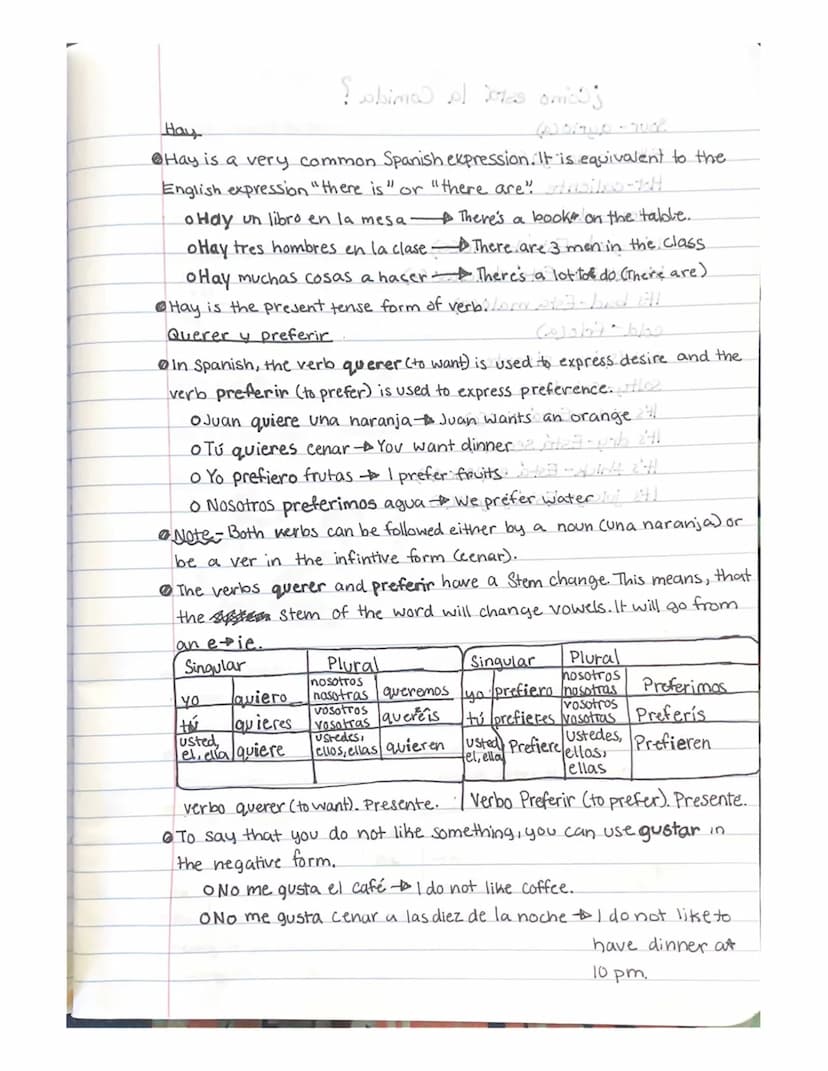 Hay
Hay is a very common Spanish expression. It is equivalent to the
English expression "there is" or "there are".
Hay un libro en la mesa → There's a book on the table.
Hay tres hombres en la clase → There are 3 men in the class
Hay muchas cosas a hacer → There's a lot to do (There are)
Hay is the present tense form of verb.
Querer y preferir
In Spanish, the verb querer (to want) is used to express desire and the
verb preferir (to prefer) is used to express preference.
Juan quiere una naranja → Juan wants an orange
Tú quieres cenar → You want dinner
Yo prefiero frutas → I prefer fruits
Nosotros preferimos agua → We prefer water
Note - Both verbs can be followed either by a noun (una naranja) or
be a ver in the infintive form (cenar).
The verbs querer and preferir have a stem change. This means, that
the stem of the word will change vowels. It will go from
an e→ie.
Singular Plural Singular Plural
yo quiero nosotros nosotras queremos yo prefiero nosotros nosotras Preferimos
tú quieres vosotros vosotras queréis tú prefieres vosotros vosotras Preferís
usted, el, ella quiere ustedes, ellos, ellas quieren usted, el, ella Prefiere ustedes, ellos, ellas Prefieren
verbo querer (to want). Presente. Verbo Preferir (to prefer). Presente.
To say that you do not like something, you can use gustar in
the negative form.
No me gusta el café → I do not like coffee.
No me gusta cenar a las diez de la noche → I do not like to
have dinner at
10 pm.